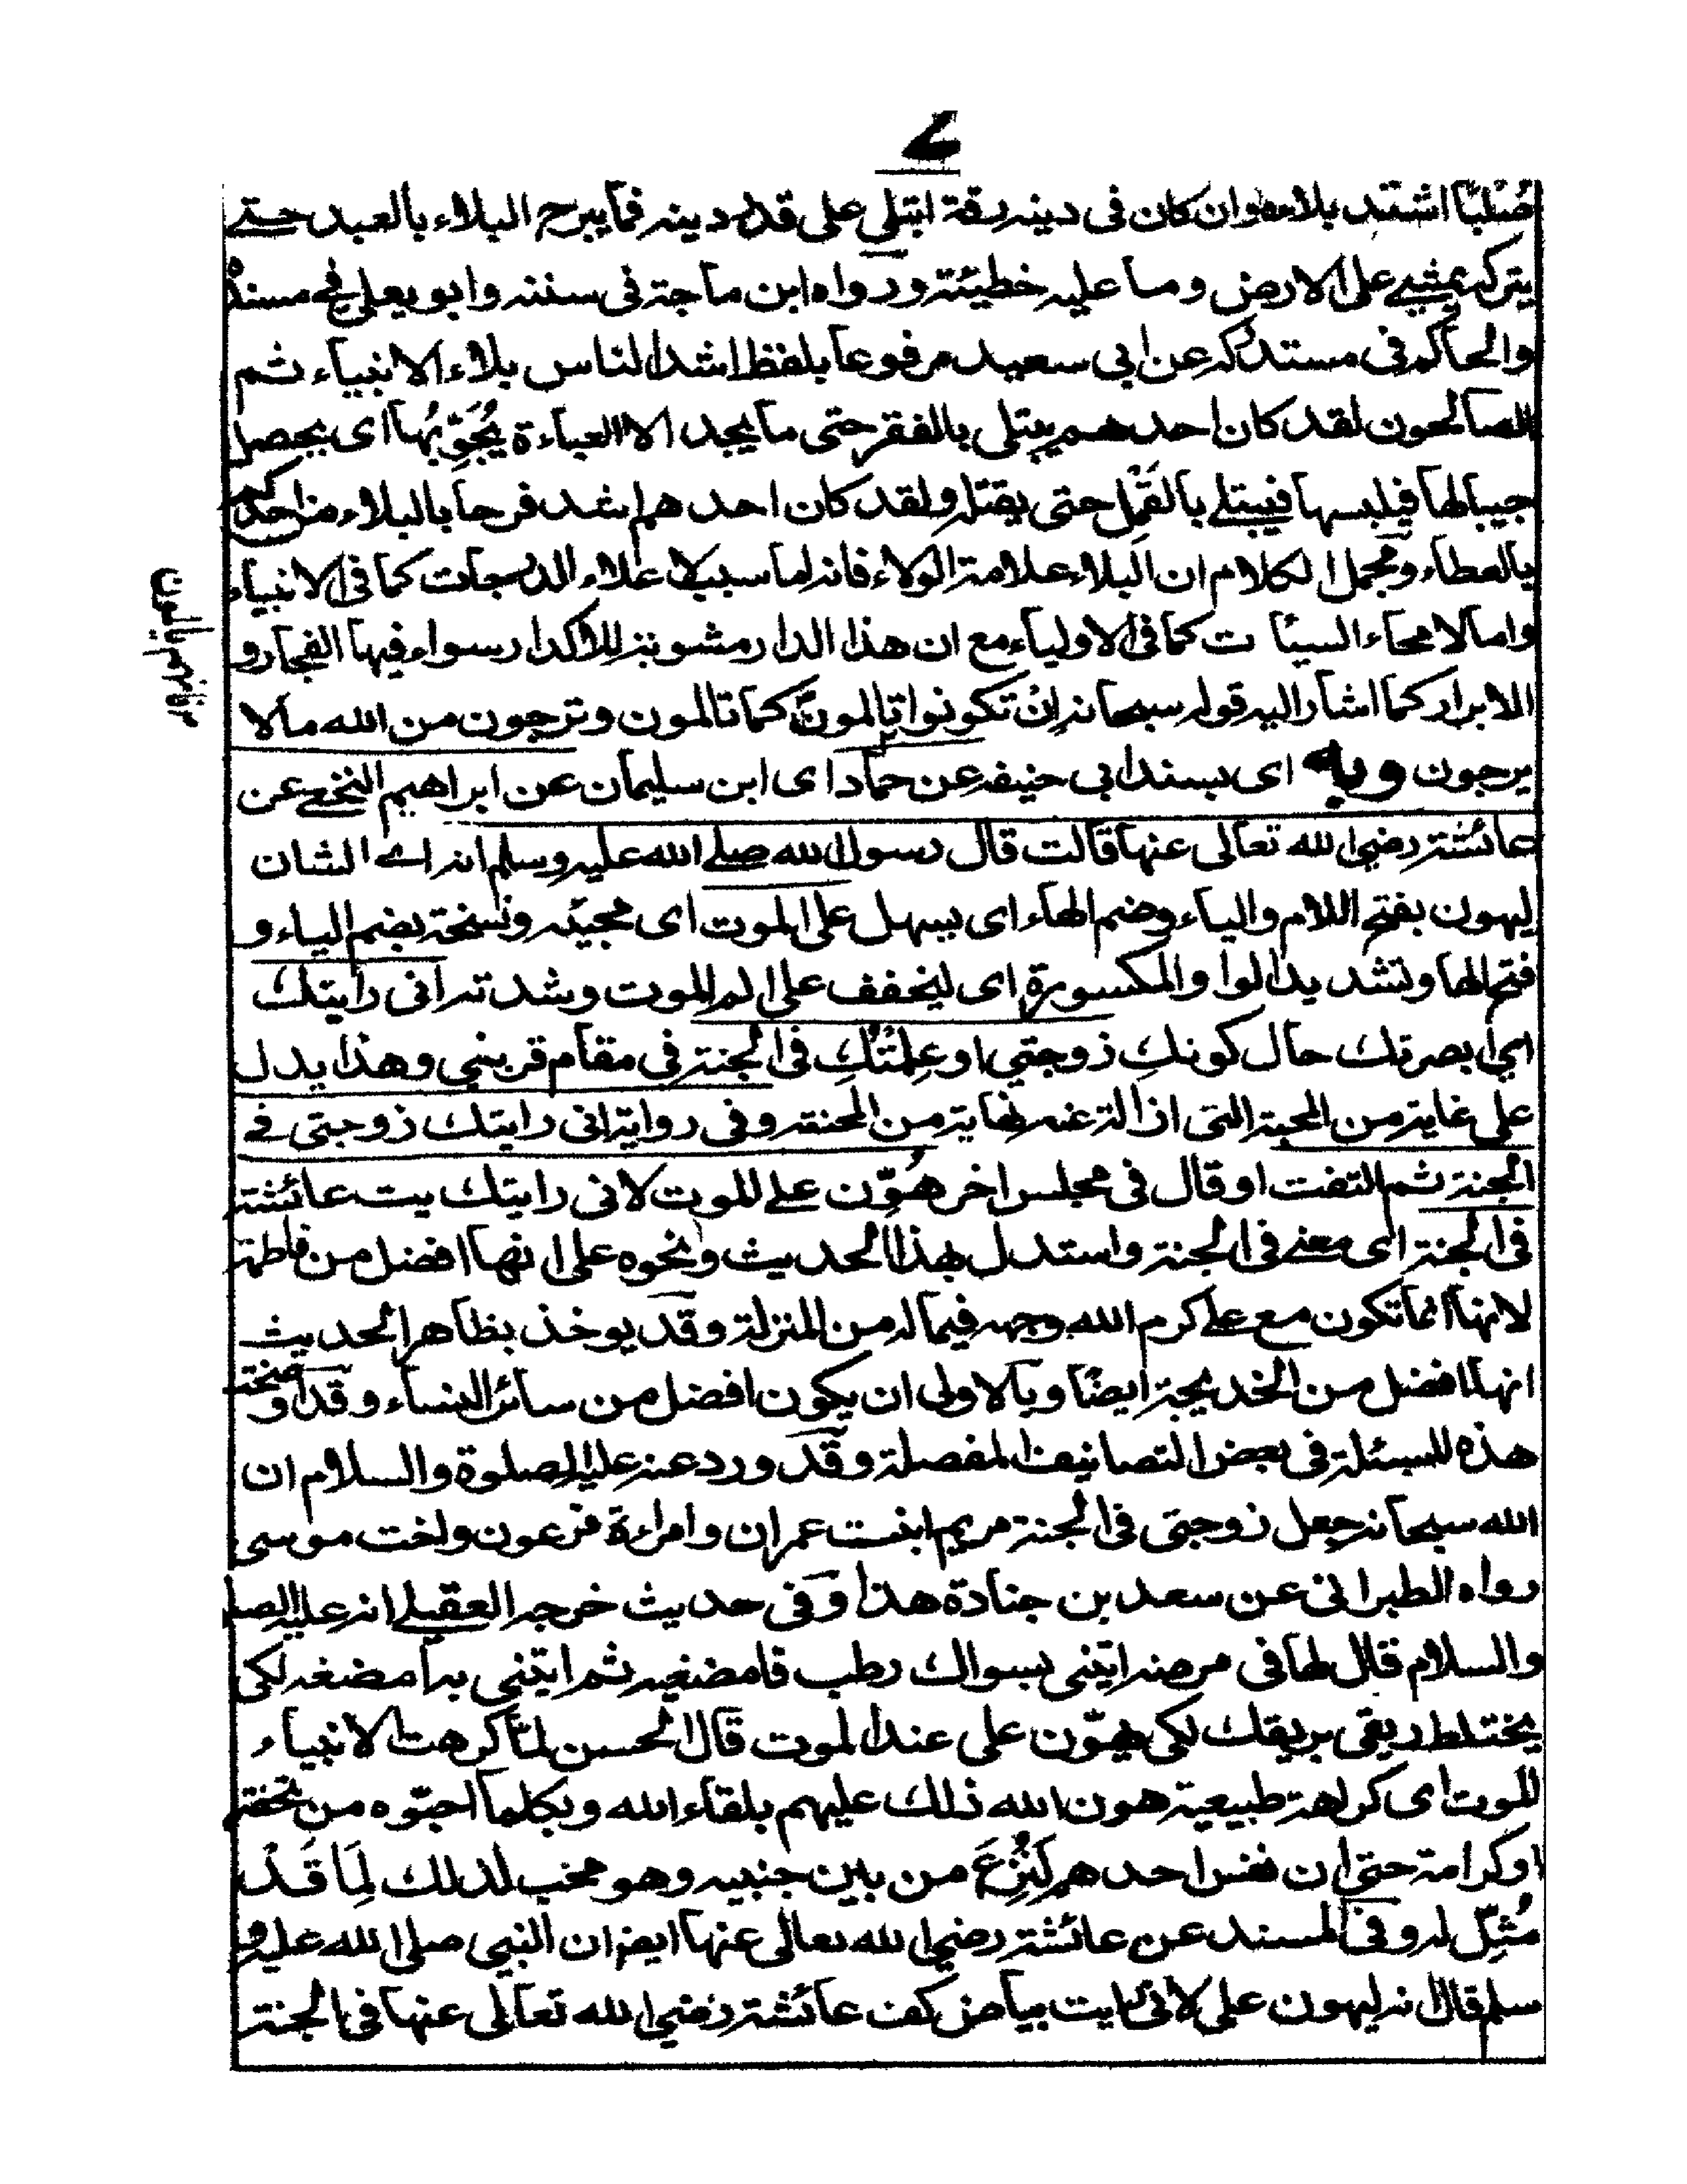 ٧
صُلبًا اشتد بلاءه وان كان فى دينه رقة ابتلى على قدر دينه فما يبرح البلاء بالعبد حتے
يتركه يمشے على الارض وما عليه خطيئة ورواه ابن ماجة فى سننه وابو يعلى فے مسنده
والحاكم فى مستدركه عن ابى سعيد مرفوعا بلفظ اشد الناس بلاء الانبياء ثم
الصالحون لقد كان احدهم يبتلى بالفقر حتى ما يجد الا العباءة يُجَوِّبُها اى يحصل
جيبا لها فيلبسها فيبتلے بالقَمْل حتى يقتله ولقد كان احدهم اشد فرحا بالبلاء من احدكم
بالعطاء ومجمل الكلام ان البلاء علامة الولاء فانه اما سبب لاعلاء الدرجات كما فى الانبياء
واما لامحاء السيئات كما فى الاولياء مع ان هذا الدار مشوبة للاكدار سواء فيها الفجار و
الابرار كما اشار اليه قوله سبحانه اِنْ تكونوا تالمون كما تالمون وترجون من الله مالا
فانهم يالمون
يرجون وبه اى بسند ابى حنيفه عن حماد اى ابن سليمان عن ابراهيم النخعے عن
عائشة رضى الله تعالى عنها قالت قال رسول الله صلے الله عليه وسلم انه اے الشان
ليهون بفتح اللام والياء وضم الهاء اى يسهل على الموت اى مجيئه ونسخة بضم الياء و
فتح الها وتشديد الواو المكسورة اى ليخفف على الم الموت وشدته انى رايتك
اى ابصرتك حال كونكِ زوجتى او عِلمْتُكِ فى الجنة فى مقام قربنى وهذا يدل
على غاية من المحبة التى ازالة عنه نهاية من المحنة وفى رواية انى رايتك زوجتى فے
الجنة ثم التفت او قال فى مجلس اخر هُوّن علے الموت لانى رايتك يت عائشة
فى الجنة اى معے فى الجنة واستدل بهذا الحديث ونحوه على انها افضل من فاطمة
لانها انما تكون مع علے كرم الله وجهه فيما له من المنزلة وقد يوخذ بظاهر الحديث
انها افضل من الخديجة ايضًا وبالاولى ان يكون افضل من سائر النساء وقد اوضحت
هذه المسئلة فى بعض التصانيف المفصلة وقد ورد عنه عليه الصلوة والسلام ان
الله سبحانه جعل زوجتى فى الجنة مريم ابنت عمران وامراءة فرعون واخت موسى
رواه الطبرانى عن سعد بن جنادة هذا وفى حديث خرجه العقيلے انه عليه الصلوة
والسلام قال لها فى مرضه ايتنى بسواك رطب فامضغيه ثم ايتنى به امضغه لكى
يختلط ريقى بريقك لكى يهوّن على عند الموت قال الحسن لمّا كرهت الانبياء
الموت اى كراهة طبيعية هون الله ذلك عليهم بلقاء الله وبكلما احبّوه من تحفة
او كرامة حتى ان نفس احدهم لَتُنْزَعُ من بين جنبيه وهو محب لذلك لِمَا قَدْ
مُثِّل له وفى المسند عن عائشة رضى الله تعالى عنها ايضا ان النبى صلى الله عليه و
سلم قال انه ليهون على لانى رايت بياض كف عائشة رضى الله تعالى عنها فى الجنة